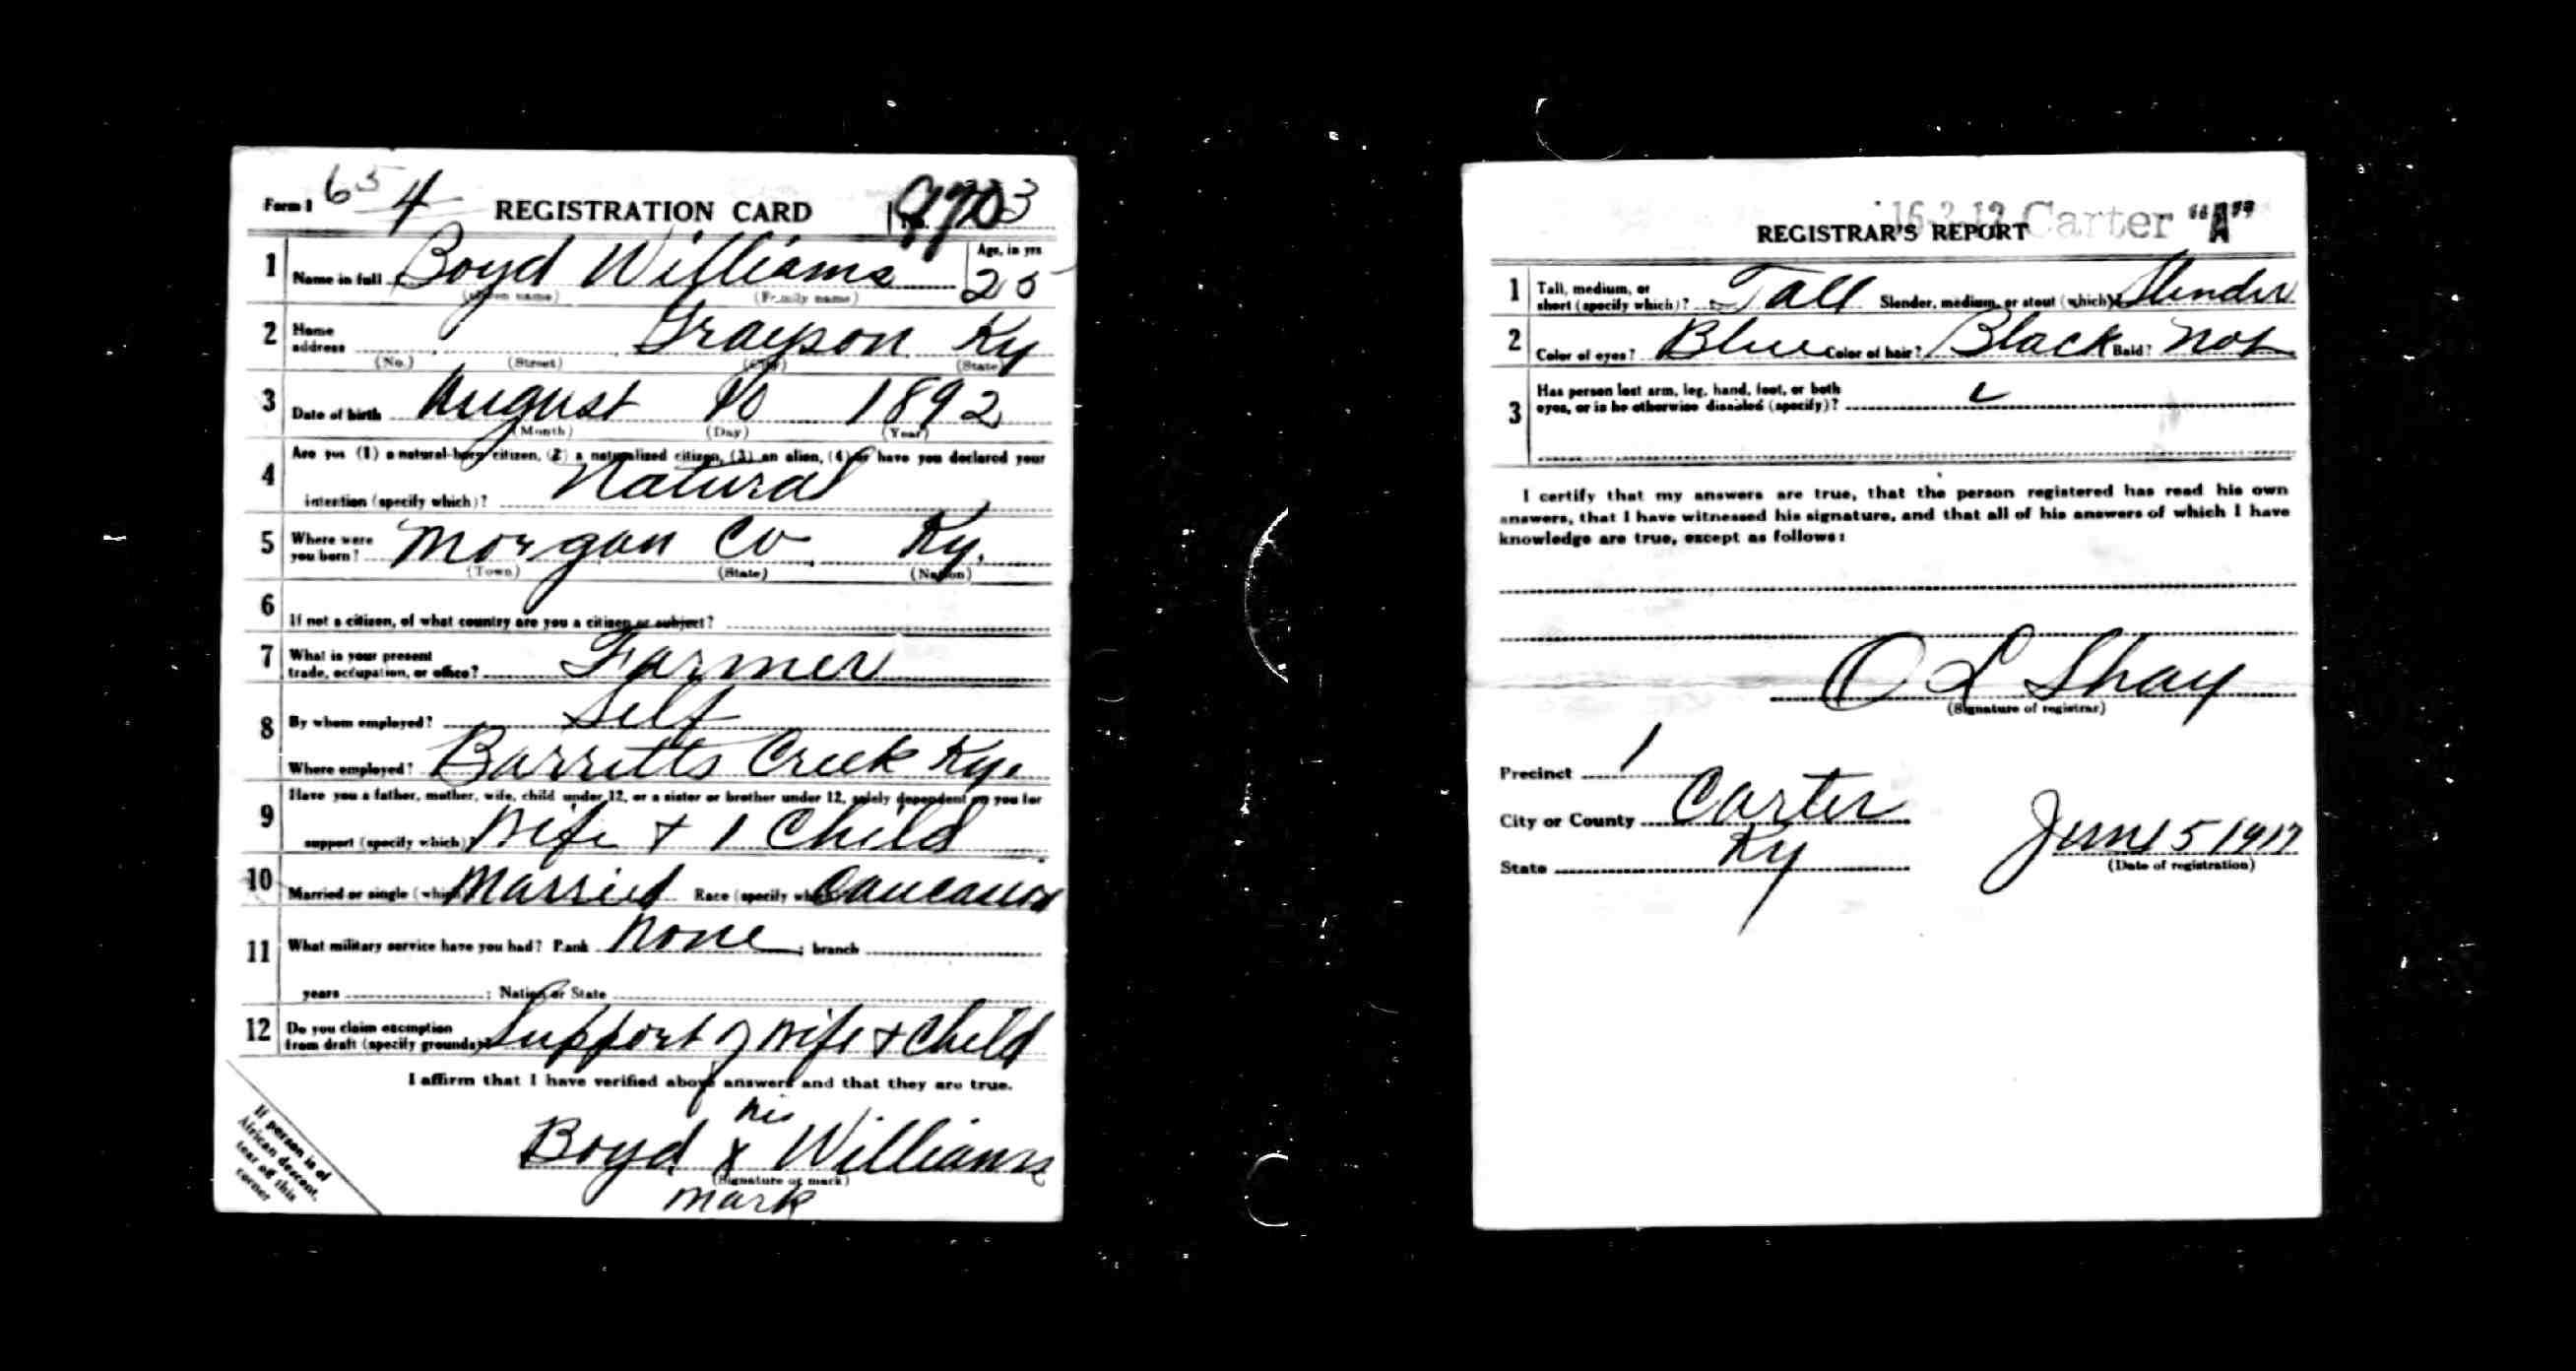 Form 1 654 REGISTRATION CARD No. 3
1 Name in full Boyd Williams Age, in yrs 25
(Given name) (Family name)
2 Home address Grayson Ky
(No.) (Street) (City) (State)
3 Date of birth August 10 1892
(Month) (Day) (Year)
4 Are you (1) a natural-born citizen, (2) a naturalized citizen, (3) an alien, (4) or have you declared your
intention (specify which)? Natural
5 Where were you born? Morgan Co Ky.
(Town) (State) (Nation)
6 If not a citizen, of what country are you a citizen or subject?
7 What is your present trade, occupation, or office? Farmer
8 By whom employed? Self
Where employed? Barretts Creek Ky.
9 Have you a father, mother, wife, child under 12, or a sister or brother under 12, solely dependent on you for
support (specify which)? Wife + 1 Child
10 Married or single (which)? Married Race (specify which)? Caucasion
11 What military service have you had? Rank None ; branch
years ; Nation or State
12 Do you claim exemption from draft (specify grounds)? Support of Wife + Child
I affirm that I have verified above answers and that they are true.
his
Boyd x Williams
(Signature or mark)
mark
If person is of
African descent,
tear off this
corner
16-3-12 Carter "A"
REGISTRAR'S REPORT
1 Tall, medium, or short (specify which)? Tall Slender, medium, or stout (which)? Slender
2 Color of eyes? Blue Color of hair? Black Bald? Not
3 Has person lost arm, leg, hand, foot, or both
eyes, or is he otherwise disabled (specify)?
I certify that my answers are true, that the person registered has read his own
answers, that I have witnessed his signature, and that all of his answers of which I have
knowledge are true, except as follows:
O L Shay
(Signature of registrar)
Precinct 1
City or County Carter
State Ky
June 5 1917
(Date of registration)